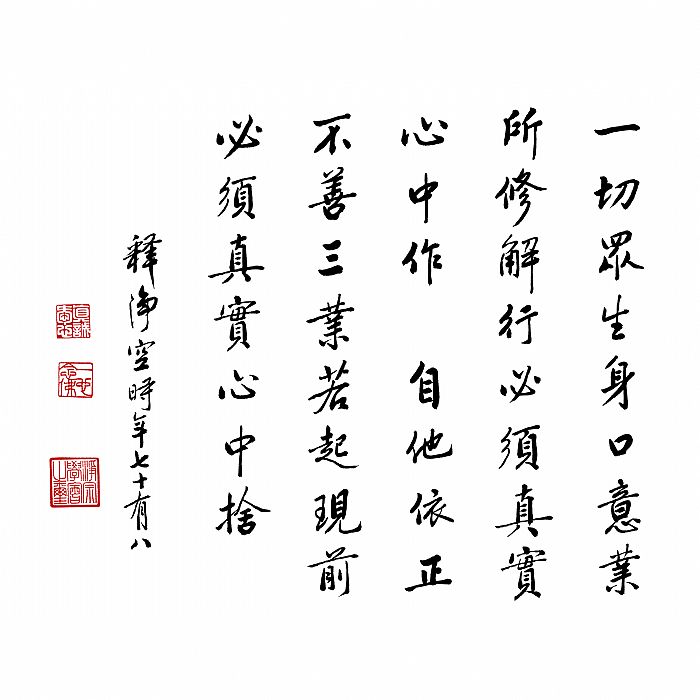 一切眾生身口意業
所修解行必須真實
心中作 自他依正
不善三業若起現前
必須真實心中捨
释淨空時年七十有八